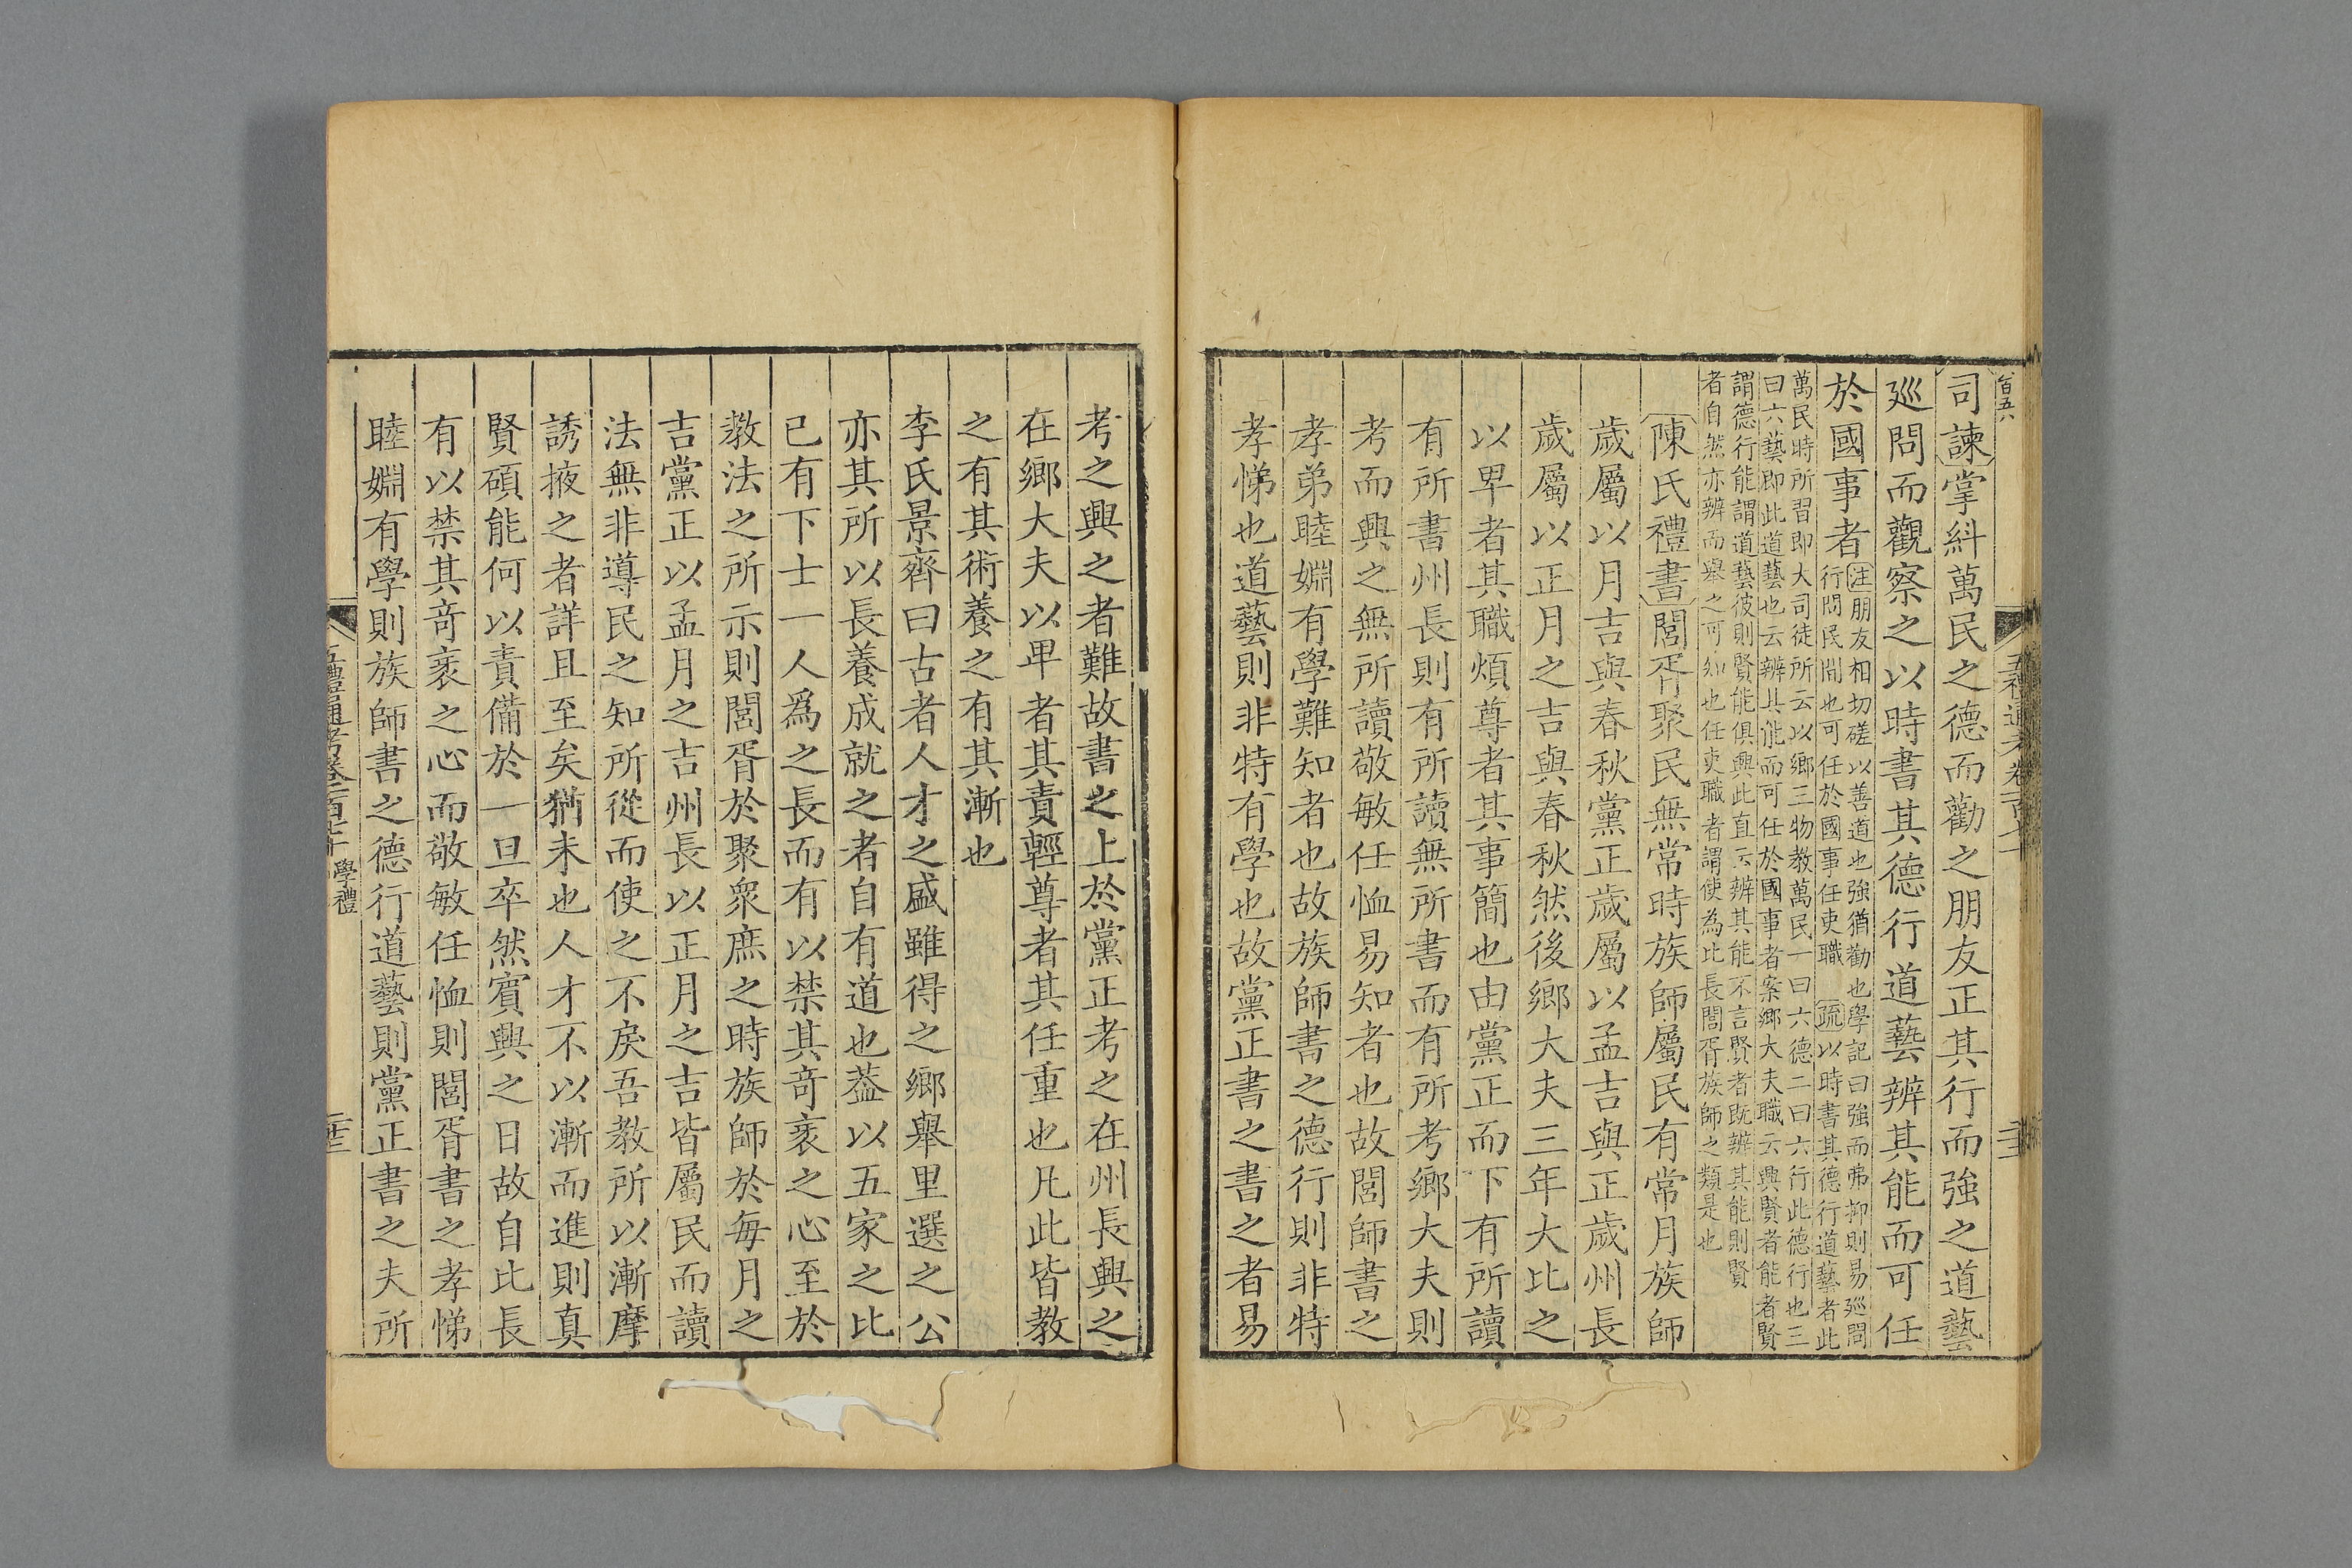 司諫掌糾萬民之德而勸之朋友正其行而強之道藝
巡問而觀察之以時書其德行道藝辨其能而可任
於國事者注朋友相切磋以善道也強猶勸也學記曰強而弗抑則易巡問
行問民間也可任於國事任吏職疏以時書其德行道藝者此
萬民時所習即大司徒所云以鄉三物教萬民一曰六德二曰六行此德行也三
曰六藝即此道藝也云辨其能而可任於國事者案鄉大夫職云興賢者能者賢
謂德行能謂道藝彼則賢能俱興此直云辨其能不言賢者既辨其能則賢
者自然亦辨而舉之可知也任吏職者謂使為比長閭胥族師之類是也
陳氏禮書閭胥聚民無常時族師屬民有常月族師
歲屬以月吉與春秋黨正歲屬以孟吉與正歲州長
歲屬以正月之吉與春秋然後鄉大夫三年大比之
以卑者其職煩尊者其事簡也由黨正而下有所讀
有所書州長則有所讀無所書而有所考鄉大夫則
考而興之無所讀敬敏任恤易知者也故閭師書之
孝弟睦婣有學難知者也故族師書之德行則非特
孝悌也道藝則非特有學也故黨正書之書之者易
考之興之者難故書之上於黨正考之在州長興之
在鄉大夫以卑者其責輕尊者其任重也凡此皆教
之有其術養之有其漸也
李氏景齊曰古者人才之盛雖得之鄉舉里選之公
亦其所以長養成就之者自有道也葢以五家之比
已有下士一人爲之長而有以禁其奇衺之心至於
教法之所示則閭胥於聚衆庶之時族師於每月之
吉黨正以孟月之吉州長以正月之吉皆屬民而讀
法無非導民之知所從而使之不戾吾教所以漸摩
誘掖之者詳且至矣猶未也人才不以漸而進則真
賢碩能何以責備於一旦卒然賓興之日故自比長
有以禁其奇衺之心而敬敏任恤則閭胥書之孝悌
睦婣有學則族師書之德行道藝則黨正書之夫所
學禮